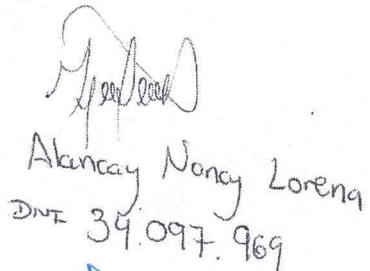 Alancay Nancy Lorena
DNI 39.097.969